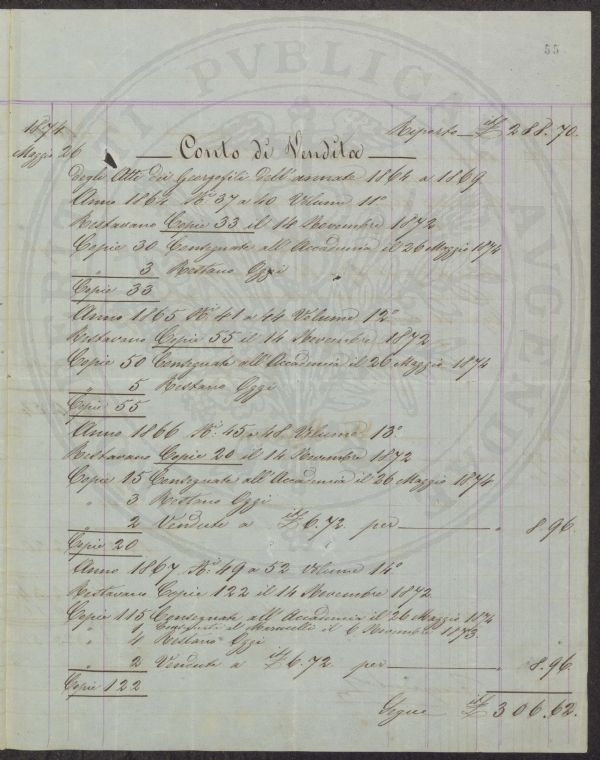 55
1874
Maggio 26
Riporto £ 288.70.
Conto di Vendita
Degli Atti dei Georgofili dell'annate 1864 a 1869
Anno 1864 N.i 37 a 40 Volume 11°
Restavano Copie 33 il 14 Novembre 1872
Copie 30 Consegnate all'Accademia il 26 Maggio 1874
" 3 Restano Oggi
Copie 33
Anno 1865 N.i 41 a 44 Volume 12°
Restavano Copie 55 il 14 Novembre 1872
Copie 50 Consegnate all'Accademia il 26 Maggio 1874
" 5 Restano Oggi
Copie 55
Anno 1866 N.i 45 a 48 Volume 13°
Restavano Copie 20 il 14 Novembre 1872
Copie 15 Consegnate all'Accademia il 26 Maggio 1874
" 3 Restano Oggi
" 2 Vendute a £ 6.72. per " 8.96.
Copie 20
Anno 1867 N.i 49 a 52 Volume 14°
Restavano Copie 122 il 14 Novembre 1872
Copie 115 Consegnate all'Accademia il 26 Maggio 1874
" 1 Consegnata al il 6 Novembre 1873.
" 4 Restano Oggi
" 2 Vendute a £ 6.72. per 8.96.
Copie 122
Segue £ 306.62.